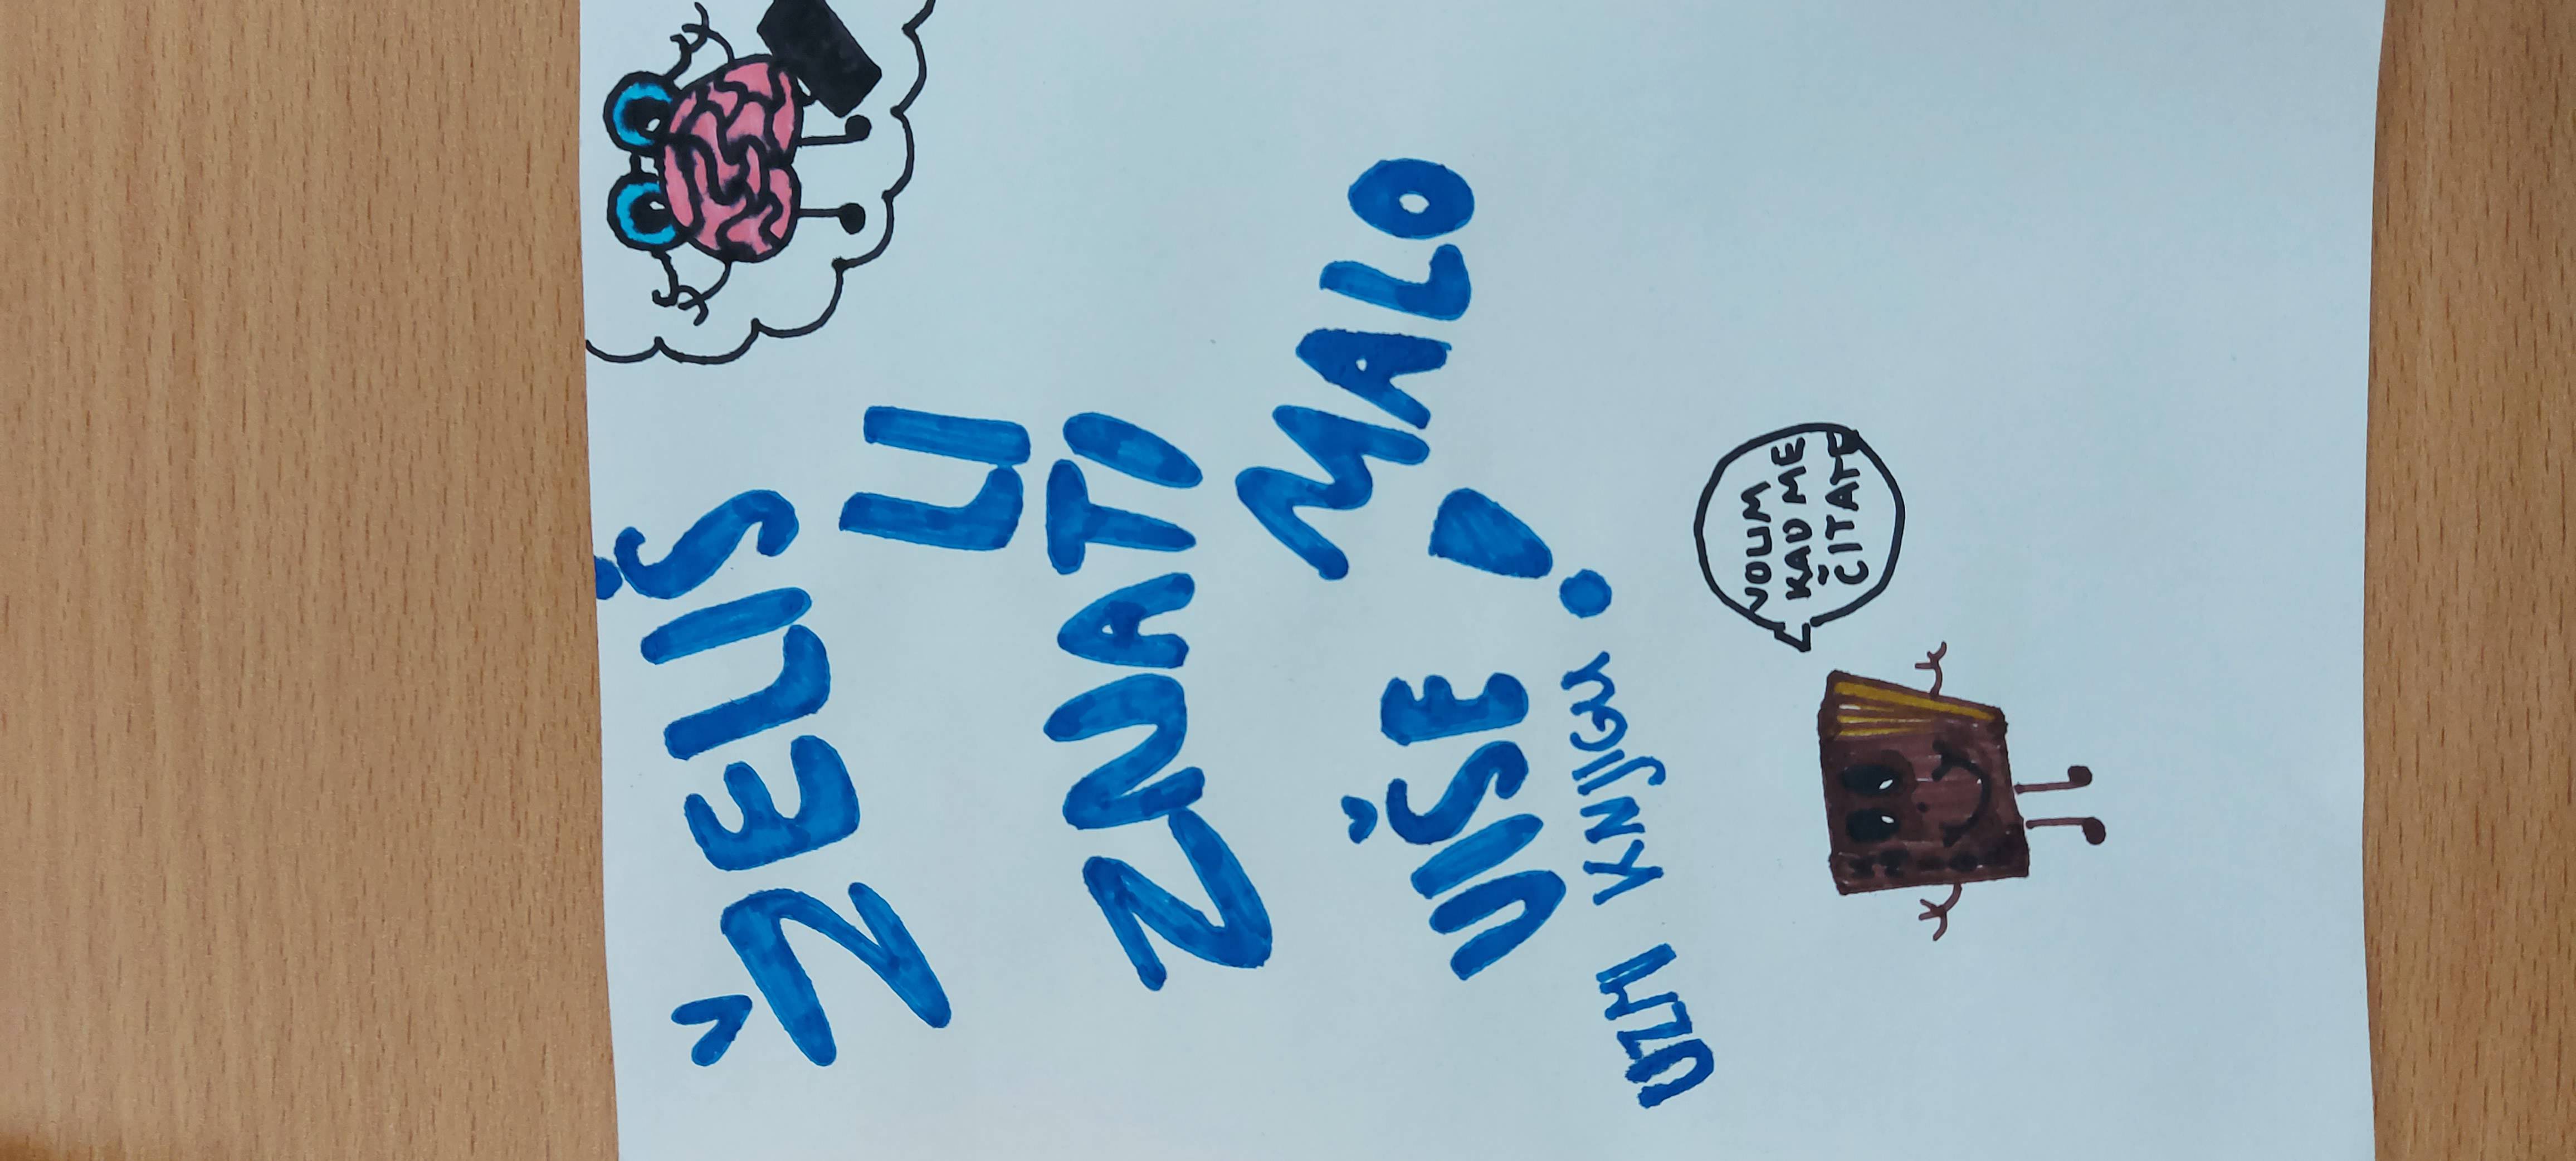 ŽELIŠ LI
ZNATI
MALO
VIŠE !
UZMI KNJIGU
VOLIM
KAD ME
ČITATE